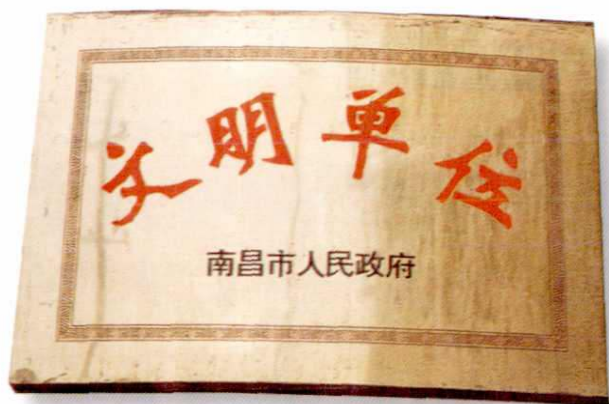 文明单位
南昌市人民政府